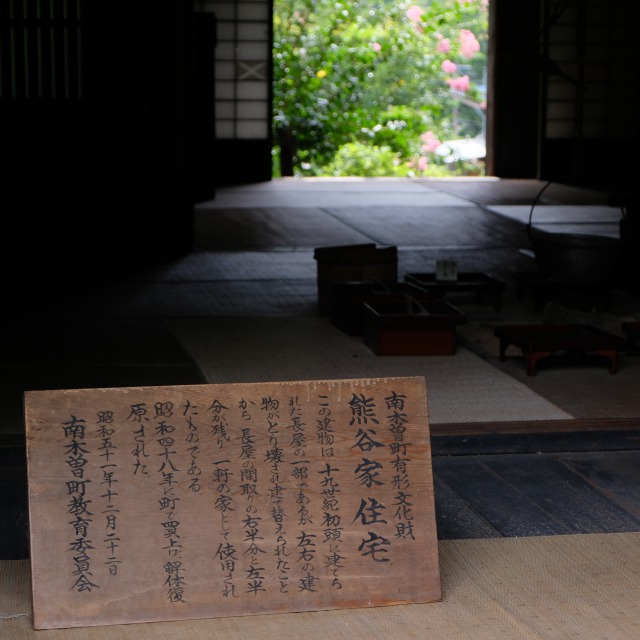 南木曽町有形文化財
熊谷家住宅
この建物は、十九世紀初頭に建てら
れた長屋の一部であるが、左右の建
物がとり壊され建て替えられたこと
から、長屋の間取の右半分と左半
分が残り、一軒の家として使用され
たものである。
昭和四十八年に町が買上げ解体復
原された。
昭和五十一年十二月二十二日
南木曽町教育委員会